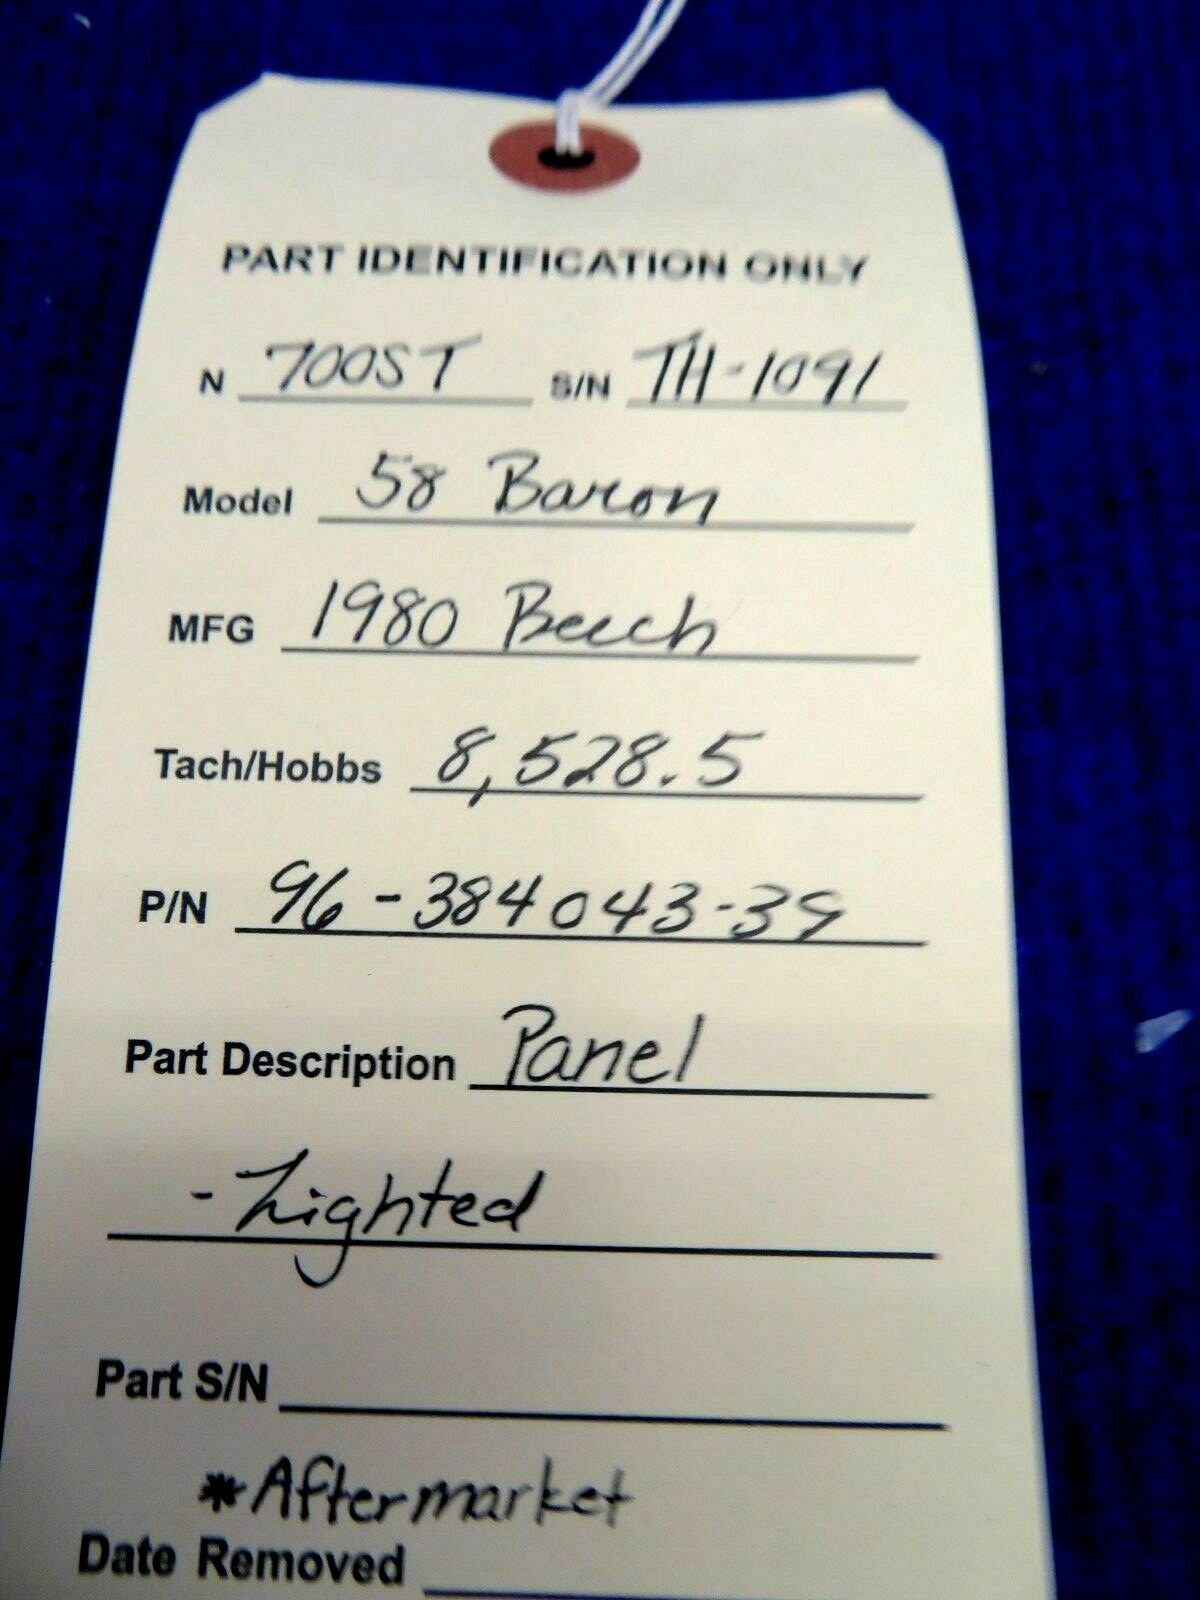 PART IDENTIFICATION ONLY
N 700ST S/N TH-1091
Model 58 Baron
MFG 1980 Beech
Tach/Hobbs 8,528.5
P/N 96-384043-39
Part Description Panel
- Lighted
Part S/N
*Aftermarket
Date Removed